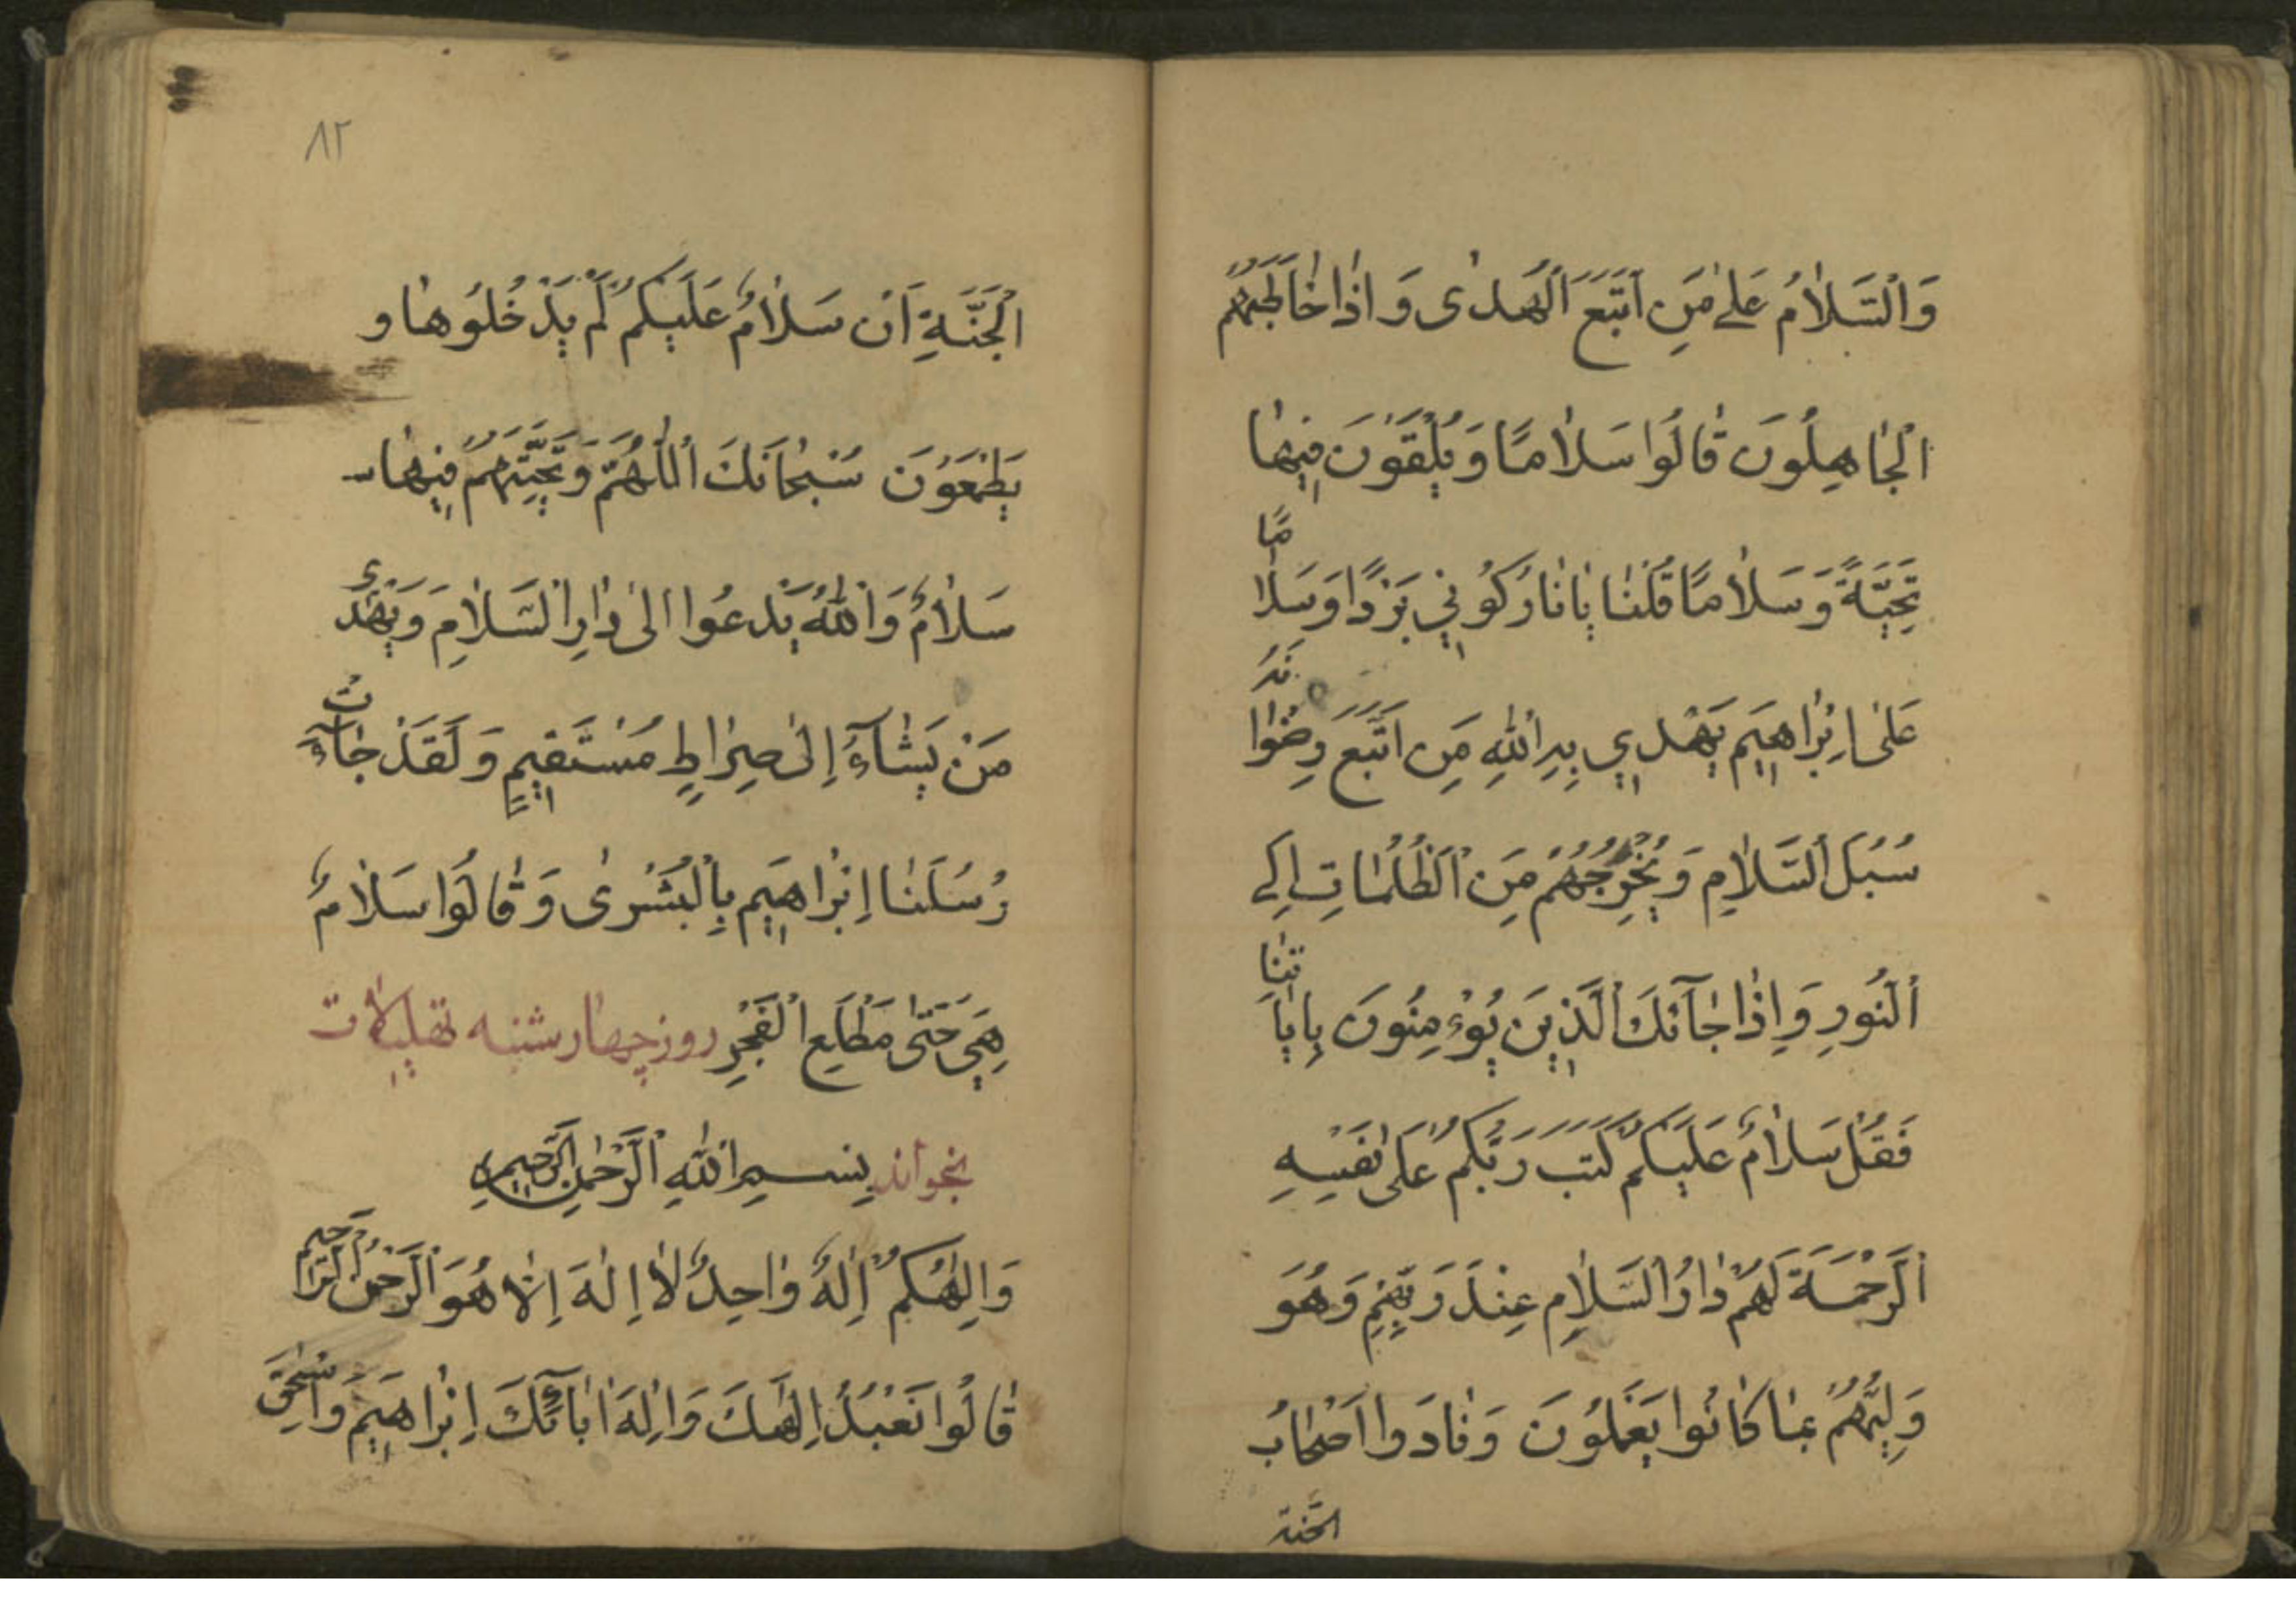 وَالسَّلَامُ عَلَىٰ مَنِ اتَّبَعَ الْهُدَىٰ وَاِذَا خَاطَبَهُمُ
الْجَاهِلُونَ قَالُوا سَلَامًا وَيُلَقَّوْنَ فِيهَا
تَحِيَّةً وَسَلَامًا قُلْنَا يَا نَارُ كُونِي بَرْدًا وَسَلَامًا
عَلَىٰ اِبْرَاهِيمَ يَهْدِي بِهِ اللَّهُ مَنِ اتَّبَعَ رِضْوَانَهُ
سُبُلَ السَّلَامِ وَيُخْرِجُهُمْ مِنَ الظُّلُمَاتِ اِلَى
النُّورِ وَاِذَا جَآئَكَ الَّذِينَ يُؤْمِنُونَ بِاٰيَاتِنَا
فَقُلْ سَلَامٌ عَلَيْكُمْ كَتَبَ رَبُّكُمْ عَلَىٰ نَفْسِهِ
الرَّحْمَةَ لَهُمْ دَارُ السَّلَامِ عِنْدَ رَبِّهِمْ وَهُوَ
وَلِيُّهُمْ بِمَا كَانُوا يَعْمَلُونَ وَنَادَوْا اَصْحَابَ
الجنة
۸۲
الْجَنَّةِ اَنْ سَلَامٌ عَلَيْكُمْ لَمْ يَدْخُلُوهَا و
يَطْمَعُونَ سُبْحَانَكَ اللَّهُمَّ وَتَحِيَّتُهُمْ فِيهَا
سَلَامٌ وَاللَّهُ يَدْعُوا اِلَىٰ دَارِ السَّلَامِ وَيَهْدِي
مَنْ يَشَآءُ اِلَىٰ صِرَاطٍ مُسْتَقِيمٍ وَلَقَدْ جَآءَتْ
رُسُلُنَا اِبْرَاهِيمَ بِالْبُشْرَىٰ وَقَالُوا سَلَامٌ
هِيَ حَتَّىٰ مَطْلَعِ الْفَجْرِ روز چهارشنبه تهلیلات
بخواند بِسْمِ اللَّهِ الرَّحْمٰنِ الرَّحِيمِ
وَاِلٰهُكُمْ اِلٰهٌ وَاحِدٌ لَا اِلٰهَ اِلَّا هُوَ الرَّحْمٰنُ الرَّحِيمُ
قَالُوا نَعْبُدُ اِلٰهَكَ وَاِلٰهَ اٰبَآئِكَ اِبْرَاهِيمَ وَاِسْحٰقَ